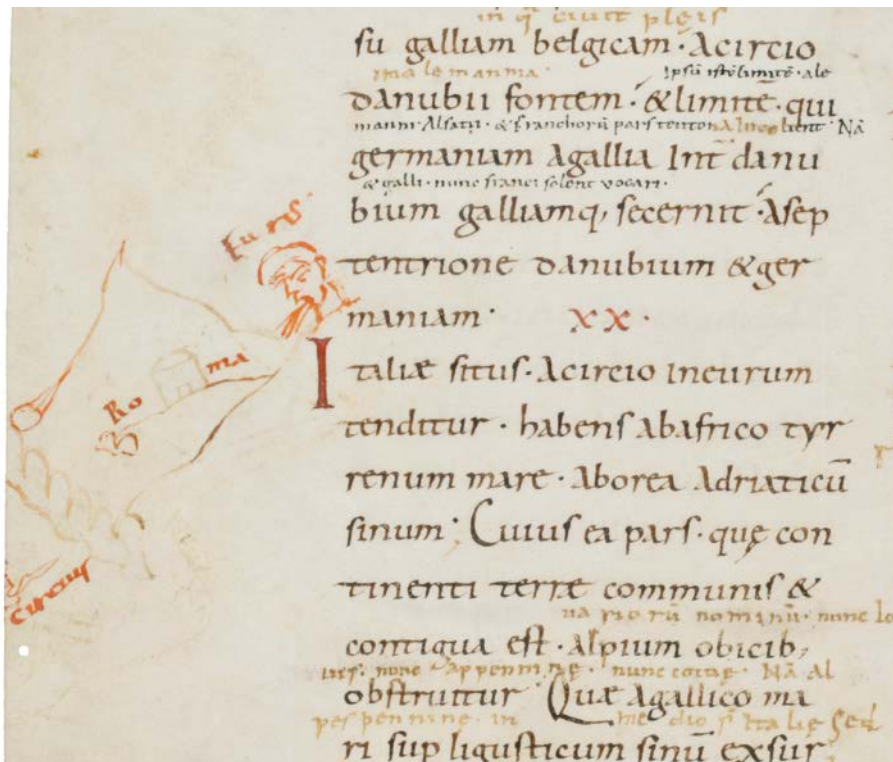 in q̅
su galliam belgicam · A circio
in alemannia ·
ipsu̅ isto̅ limite̅ · ale
danubii fontem · & limite̅ · qui
manni Alsatii · & franchoru̅ pars Na̅
germaniam A gallia Int̅ danu
& galli · nunc franci solent vocari ·
bium galliamq, secernit · A sep
Eurus
tentrione danubium & ger
maniam · xx ·
Italiæ situs · A circio In eurum
Ro ma
tenditur · habens ab africo tyr
renum mare · A borea Adriaticu̅
sinum · Cuius ea pars · quę con
tinenti terræ communis &
circius
uarioru̅ nominu̅ · nunc lo
contigua est · Alpium obicib;
nunc appenninę · nunc Na̅ Al
obstruitur · Quæ A gallico ma
pes pennine · in medio s̅ Italię Sed
ri sup ligusticum sinu̅ exsur